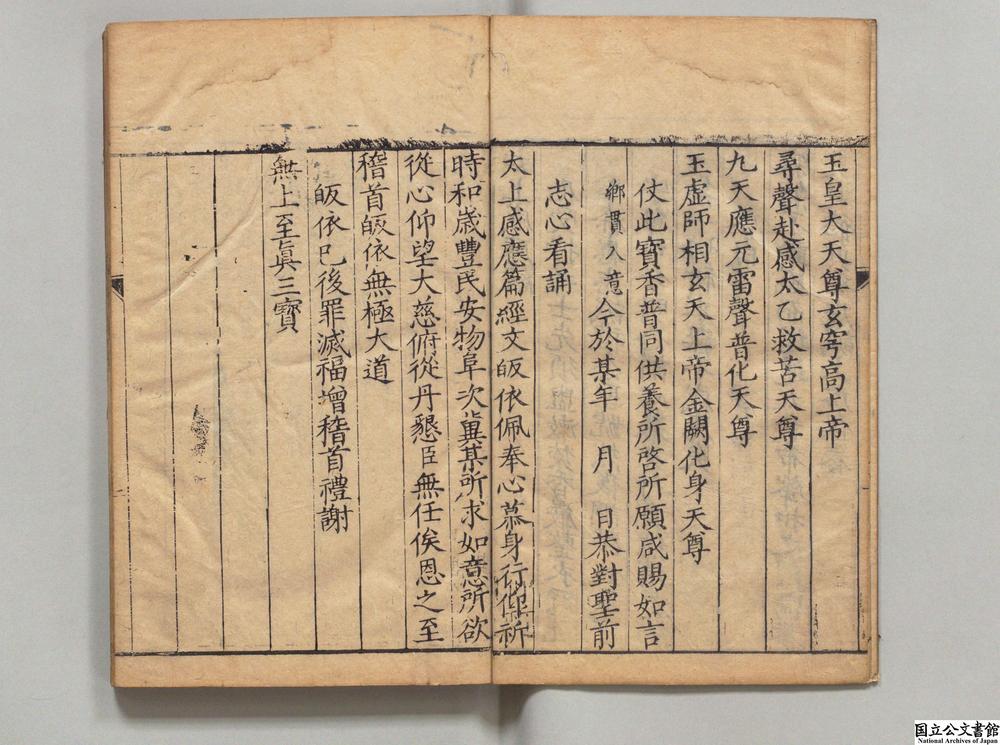 玉皇大天尊玄穹高上帝
尋聲赴感太乙救苦天尊
九天應元雷聲普化天尊
玉虛師相玄天上帝金闕化身天尊
仗此寶香普同供養所啓所願咸賜如言
鄉貫入意今於某年 月 日恭對聖前
志心看誦
太上感應篇經文皈依佩奉心慕身行仰祈
時和歲豐民安物阜次冀某所求如意所欲
從心仰望大慈俯從丹懇臣無任俟恩之至
稽首皈依無極大道
皈依已後罪滅福增稽首禮謝
無上至眞三寶
国立公文書館
National Archives of Japan